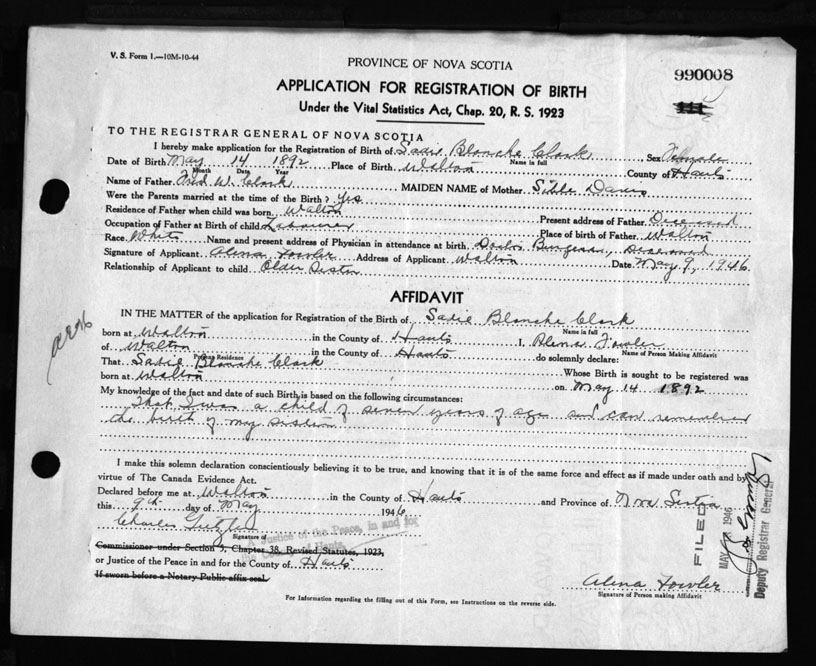 V. S. Form 1.—10M-10-44
PROVINCE OF NOVA SCOTIA
990008
APPLICATION FOR REGISTRATION OF BIRTH
Under the Vital Statistics Act, Chap. 20, R. S. 1923
TO THE REGISTRAR GENERAL OF NOVA SCOTIA
I hereby make application for the Registration of Birth of Sadie Blanche Clark, Sex Female
Name in full
Date of Birth May 14 1892 Place of Birth Walton County of Hants
Month Date Year
Name of Father Fred W. Clark MAIDEN NAME of Mother Davis
Were the Parents married at the time of the Birth? Yes
Residence of Father when child was born Walton Present address of Father Deceased
Occupation of Father at Birth of child Labourer Place of birth of Father Walton
Race White Name and present address of Physician in attendance at birth Doctor Burgess, Deceased
Signature of Applicant Alena Fowler Address of Applicant Walton Date May 9, 1946
Relationship of Applicant to child Older Sister
AFFIDAVIT
IN THE MATTER of the application for Registration of the Birth of Sadie Blanche Clark
Name in full
born at Walton in the County of Hants I, Alena Fowler
Name of Person Making Affidavit
of Walton in the County of Hants do solemnly declare:
Present Residence
That Sadie Blanche Clark Whose Birth is sought to be registered was
born at Walton on May 14 1892
My knowledge of the fact and date of such Birth is based on the following circumstances:
That I was a child of seven years of age and can remember
the birth of my sister
I make this solemn declaration conscientiously believing it to be true, and knowing that it is of the same force and effect as if made under oath and by
virtue of The Canada Evidence Act.
Declared before me at Walton in the County of Hants and Province of Nova Scotia
this 9th day of May 1946
Charles
Signature of
A Justice of the Peace, in and for
the County of Hants
Commissioner under Section 5, Chapter 38, Revised Statutes, 1923,
or Justice of the Peace in and for the County of Hants
If sworn before a Notary Public affix seal.
Alena Fowler
Signature of Person making Affidavit
For Information regarding the filling out of this Form, see Instructions on the reverse side.
FILED
MAY 1946
Deputy Registrar General